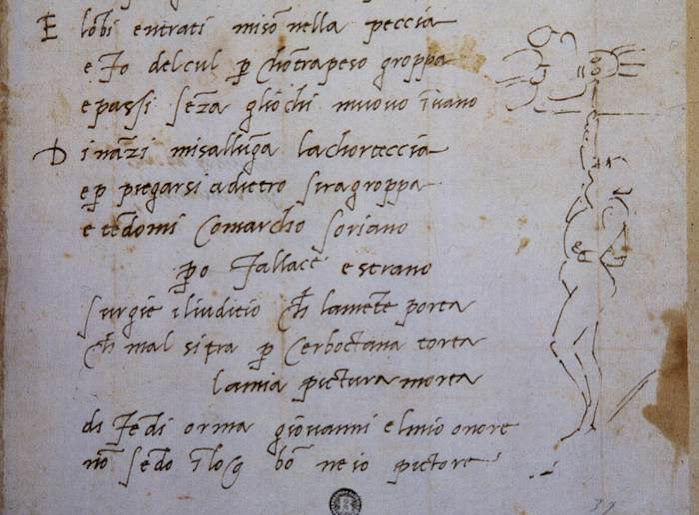 E lobi entrati miso nella peccia
e fo del cul p chotrapeso groppa
e passi seza gliochi muovo ivano
D inazi misalluga lachorteccia
e p piegarsi adietro siragroppa
e tedomi comarcho soriano
po fallace e strano
surgie iliuditio ch lamete porta
ch mal sitra p cerboctana torta
lamia pictura morta
di fedi orma giovanni elmio onore
no sedo ilog bo ne io pictore